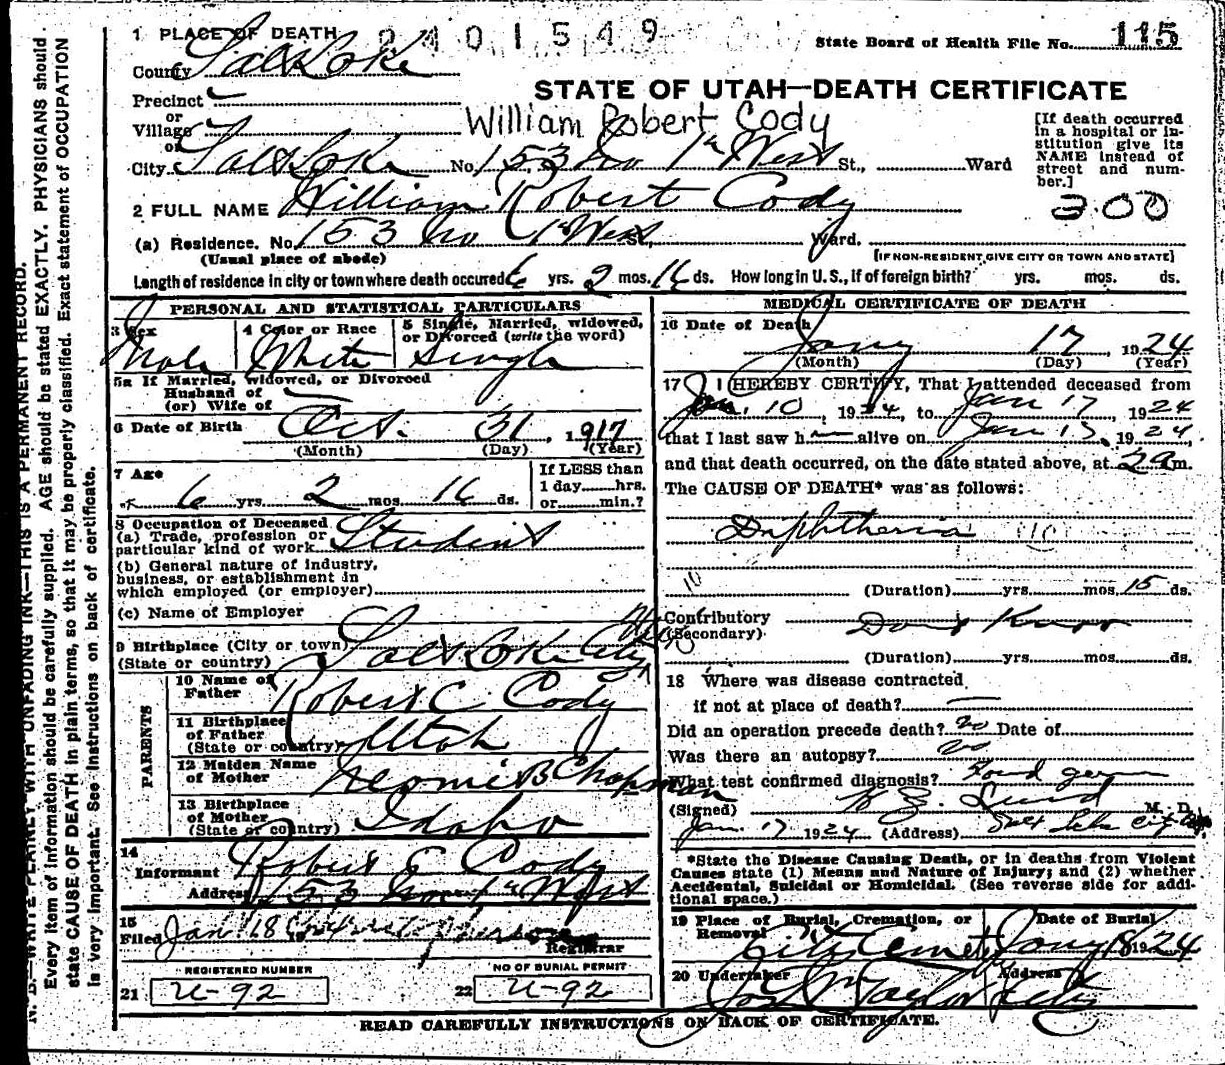 1 PLACE OF DEARTH 2401549 State Board of Health File No. 115
County Salt Lake
STATE OF UTAH—DEATH CERTIFICATE
Precinct
or
Village
William Robert Cody
or
City Salt Lake No. 153 No 1st West St., Ward
[If death occurred
in a hospital or in-
stitution give its
NAME instead of
street and num-
ber.]
2 FULL NAME William Robert Cody
300
(a) Residence. No. 153 No 1st West St., Ward.
(Usual place of abode) [IF NON-RESIDENT, GIVE CITY OR TOWN AND STATE]
Length of residence in city or town where death occured 6 yrs. 2 mos. 16 ds. How long in U. S., if of foreign birth? yrs. mos. ds.
PERSONAL AND STATISTICAL PARTICULARS
3 Sex
Male
4 Color or Race
White
5 Single, Married, widowed,
or Divorced (write the word)
Single
5a If Married, widowed, or Divorced
Husband of
(or) Wife of
6 Date of Birth Oct. 31, 1917
(Month) (Day) (Year)
7 Age
6 yrs. 2 mos. 16 ds.
If LESS than
1 day......hrs.
or......min.?
8 Occupation of Deceased
(a) Trade, profession or
particular kind of work Student
(b) General nature of industry,
business, or establishment in
which employed (or employer)
(c) Name of Employer
9 Birthplace (City or town) Salt Lake City
(State or country)
PARENTS
10 Name of
Father Robert C Cody
11 Birthplace
of Father
(State or country) Utah
12 Maiden Name
of Mother Neomi B Chapman
13 Birthplace
of Mother
(State or country) Idaho
14
Informant Robert C Cody
Address 153 No 1st West
15
Filed Jan 18
Registrar
REGISTERED NUMBER
21 U-92
NO OF BURIAL PERMIT
22 U-92
MEDICAL CERTIFICATE OF DEATH
16 Date of Death
Jany 17, 1924
(Month) (Day) (Year)
17 I HEREBY CERTIFY, That I attended deceased from
Jan. 10, 1924, to Jan 17, 1924
that I last saw h alive on Jan 17, 1924
and that death occurred, on the date stated above, at 2 a m.
The CAUSE OF DEATH* was as follows:
Diphtheria 10
10
(Duration) yrs. mos. 15 ds.
Contributory
(Secondary)
(Duration) yrs. mos. ds.
18 Where was disease contracted
if not at place of death?
Did an operation precede death? no Date of
Was there an autopsy? no
What test confirmed diagnosis? Found germ
(Signed) Lund M. D.
Jan. 17 1924 (Address) Salt Lake City
*State the Disease Causing Death, or in deaths from Violent
Causes state (1) Means and Nature of Injury; and (2) whether
Accidental, Suicidal or Homicidal. (See reverse side for addi-
tional space.)
19 Place of Burial, Cremation, or
Removal
City Cemetery
Date of Burial
Jany 18 1924
20 Undertaker Address
Jos Wm Taylor City
READ CAREFULLY INSTRUCTIONS ON BACK OF CERTIFICATE.
N. B.—WRITE PLAINLY WITH UNFADING INK—THIS IS A PERMANENT RECORD.
Every item of information should be carefully supplied. AGE should be stated EXACTLY. PHYSICIANS should
state CAUSE OF DEATH in plain terms, so that it may be properly classified. Exact statement of OCCUPATION
is very important. See instructions on back of certificate.